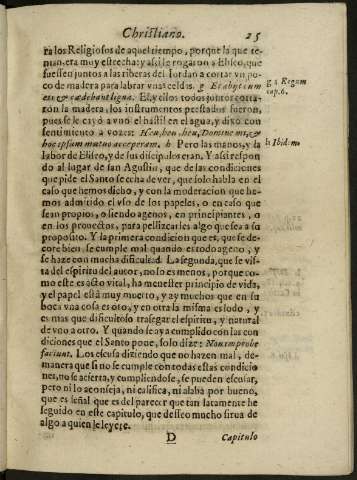 Christiano. 25
ra los Religiosos de aquel tiempo, porque la que te-
nian, era muy estrecha: y assi le rogaron a Eliseo, que
fuessen juntos a las riberas del Iordan a cortar vn po-
co de madera para labrar vnas celdas. g Et abijt cum
eis & cædebant ligna. El, y ellos todos juntos corta-
ron la madera, los instrumentos prestados fueron,
pues se le cayò a vno el hastil en el agua, y dixo con
sentimiento a vozes: Heu, heu, heu, Domine mi, &
hoc ipsum mutuo acceperam. h Pero las manos, y la
labor de Eliseo, y de sus discipulos eran. Y assi respon
do al lugar de san Agustin, que de las condiciones
que pide el Santo se echa de ver, que solo habla en el
caso que hemos dicho, y con la moderacion que he-
mos admitido el vso de los papeles, o en caso que
sean propios, o siendo agenos, en principiantes, o
en los prouectos, para pellizcarles algo que sea a su
proposito. Y la primera condicion que es, que se de-
core bien, se cumple mal quando es todo ageno, y
se haze con mucha dificultad. La segunda, que se vis-
ta del espiritu del autor, no lo es menos, porque co-
mo este es acto vital, ha menester principio de vida,
y el papel està muy muerto, y ay muchos que en su
boca vna cosa es oro, y en otra la misma es lodo, y
es mas que dificultoso trasegar el espiritu, y natural
de vno a otro. Y quando se aya cumplido con las con
diciones que el Santo pone, solo dize: Non improbe
faciunt. Los escusa diziendo que no hazen mal, de-
manera que si no se cumple con todas estas condicio
nes, no se acierta, y cumpliendose, se pueden escusar,
pero ni lo aconseja, ni califica, ni alaba por bueno,
que es señal que es del parecer que tan latamente he
seguido en este capitulo, que desseo mucho sirua de
algo a quien le leyere.
D Capitulo
g 4 Regum
cap. 6.
h Ibidem